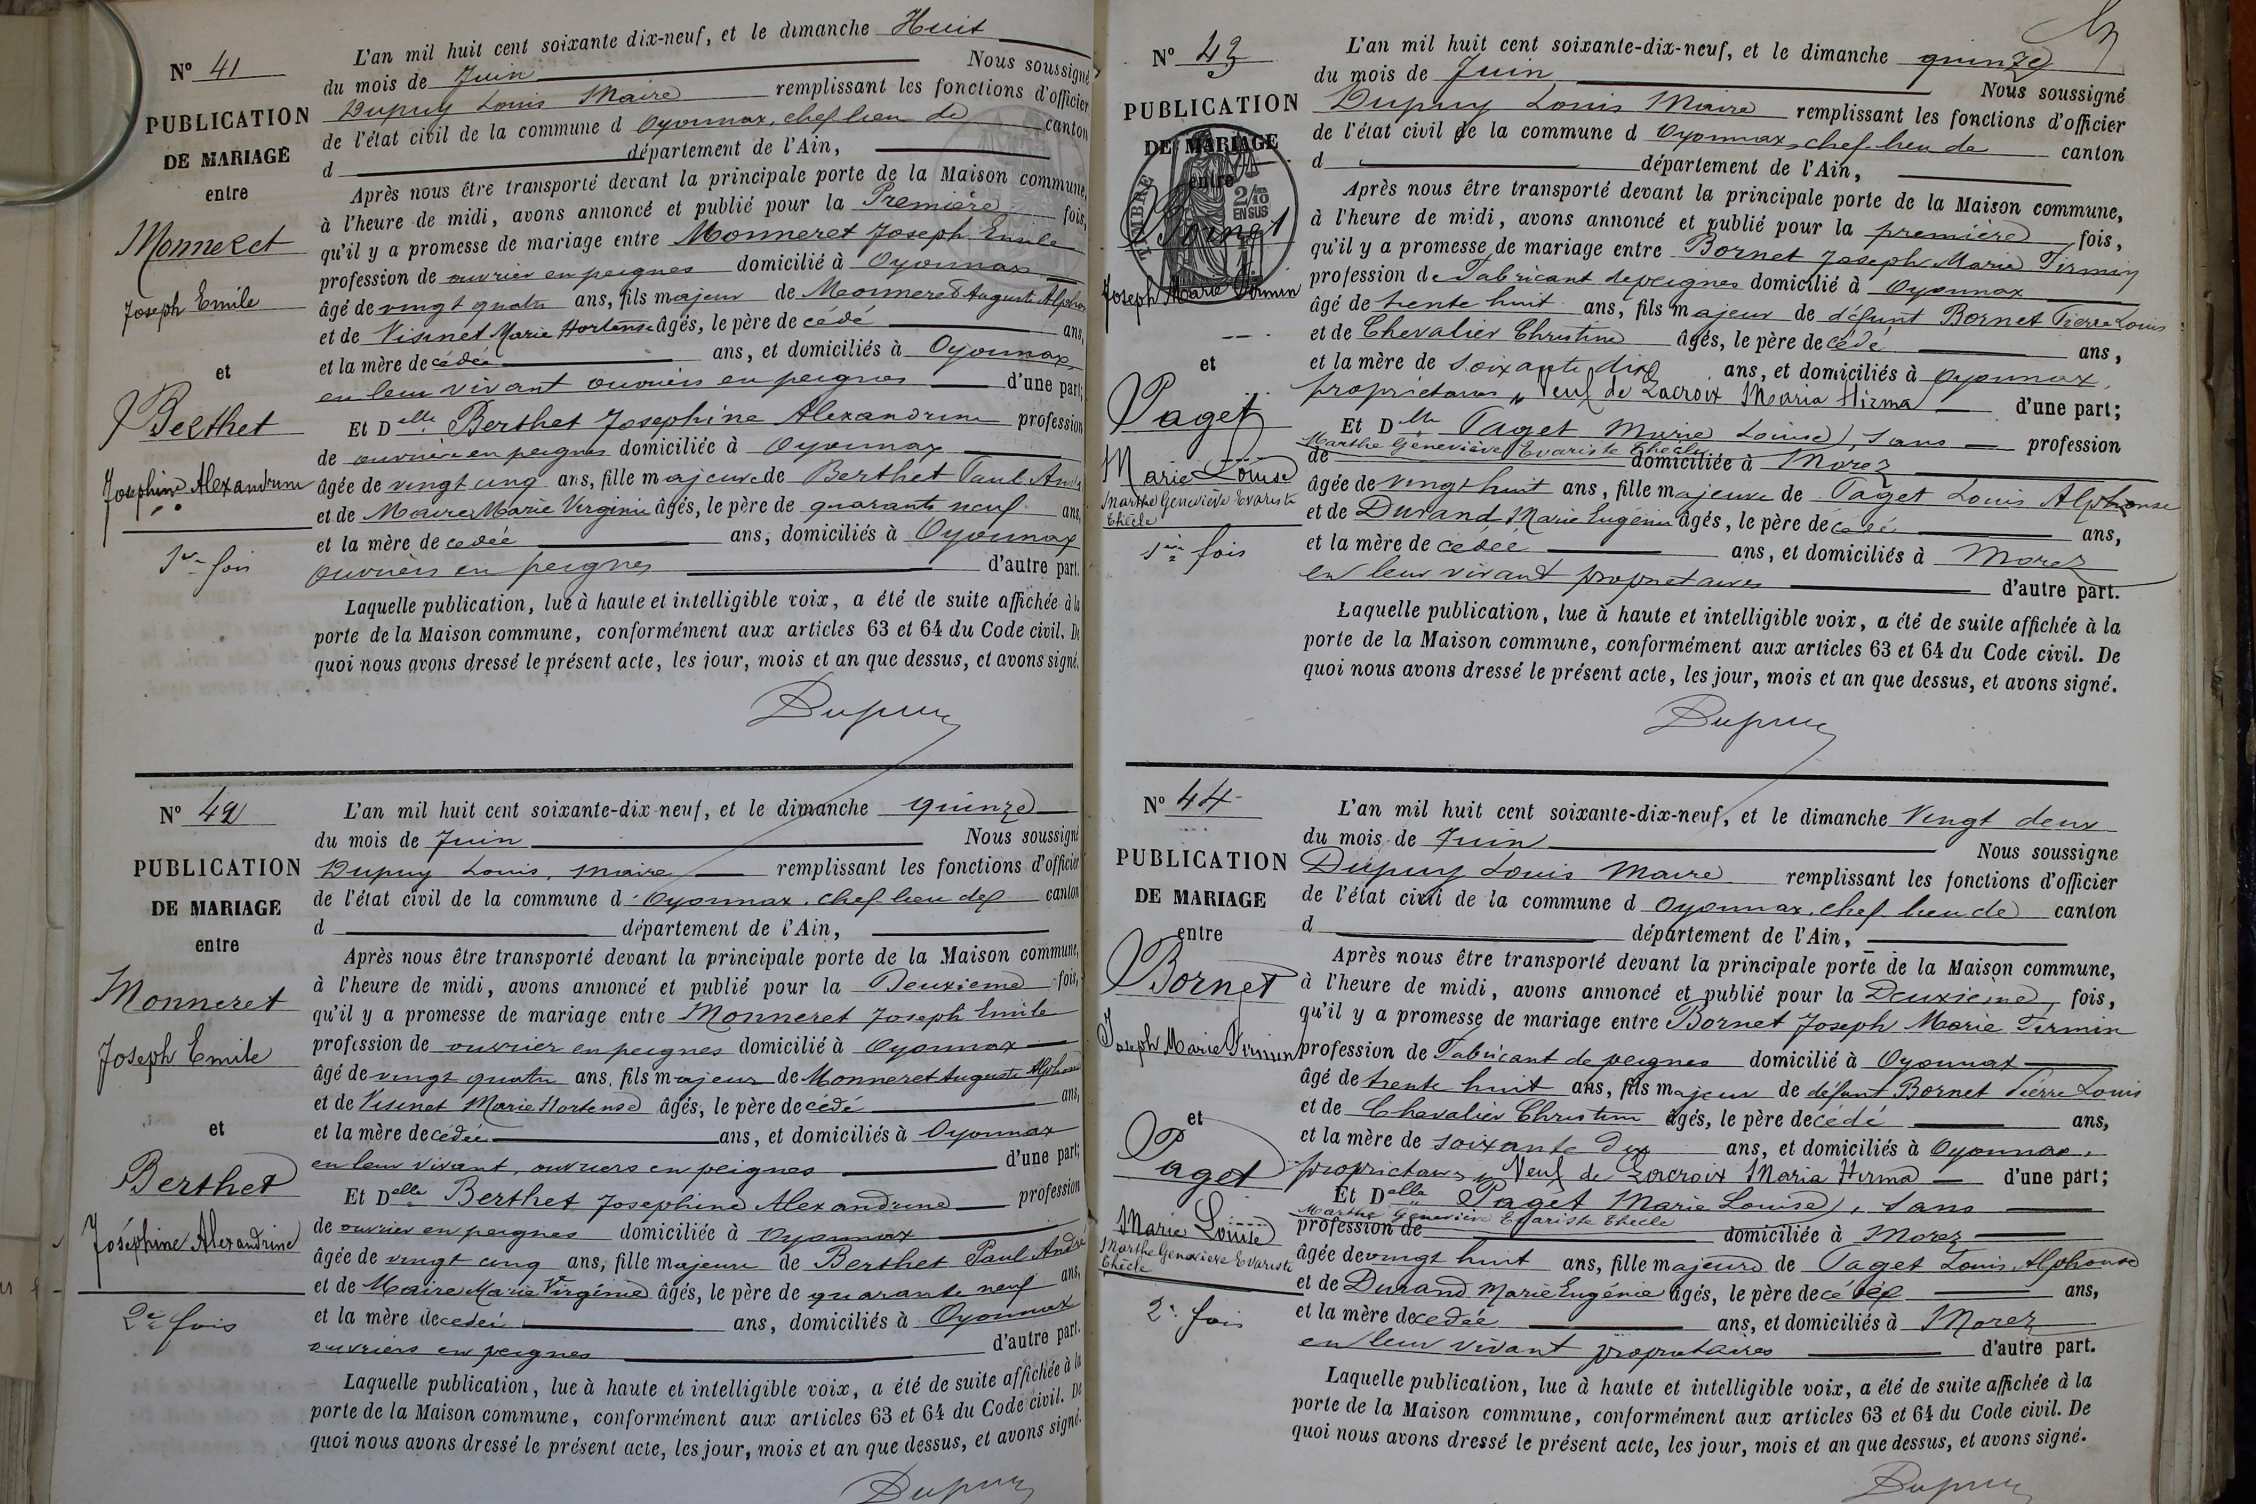 N° 41
PUBLICATION
DE MARIAGE
entre
Monneret
Joseph Emile
et
Berthet
Josephine Alexandrine
1re fois
L'an mil huit cent soixante dix-neuf, et le dimanche Huit
du mois de Juin Nous soussigné
Dupuy Louis Maire remplissant les fonctions d'officier
de l'état civil de la commune d Oyonnax, chef lieu de canton
d département de l'Ain,
Après nous être transporté devant la principale porte de la Maison commune,
à l'heure de midi, avons annoncé et publié pour la Première fois,
qu'il y a promesse de mariage entre Monneret Joseph Emile
profession de ouvrier en peignes domicilié à Oyonnax
âgé de vingt quatre ans, fils majeur de Monneret Auguste Alphon
et de Visinet Marie Hortense âgés, le père de cédé ans,
et la mère de cédée ans, et domiciliés à Oyonnax
en leur vivant ouvriers en peignes d'une part;
Et Delle Berthet Josephine Alexandrine profession
de ouvrière en peignes domiciliée à Oyonnax
âgée de vingt cinq ans, fille majeure de Berthet Paul André
et de Maire Marie Virginie âgés, le père de quarante neuf ans,
et la mère de cedée ans, domiciliés à Oyonnax
ouvriers en peignes d'autre part.
Laquelle publication, lue à haute et intelligible voix, a été de suite affichée à la
porte de la Maison commune, conformément aux articles 63 et 64 du Code civil. De
quoi nous avons dressé le présent acte, les jour, mois et an que dessus, et avons signé.
Dupuy
N° 42
PUBLICATION
DE MARIAGE
entre
Monneret
Joseph Emile
et
Berthet
Joséphine Alexandrine
2e fois
L'an mil huit cent soixante-dix-neuf, et le dimanche quinze
du mois de Juin Nous soussigné
Dupuy Louis, Maire remplissant les fonctions d'officier
de l'état civil de la commune d Oyonnax, chef lieu de canton
d département de l'Ain,
Après nous être transporté devant la principale porte de la Maison commune,
à l'heure de midi, avons annoncé et publié pour la Deuxieme fois,
qu'il y a promesse de mariage entre Monneret Joseph Emile
profession de ouvrier en peignes domicilié à Oyonnax
âgé de vingt quatre ans, fils majeur de Monneret Auguste Alphonse
et de Visinet Marie Hortense âgés, le père de cédé ans,
et la mère de cédée ans, et domiciliés à Oyonnax
en leur vivant, ouvriers en peignes d'une part;
Et Delle Berthet Josephine Alexandrine profession
de ouvrier en peignes domiciliée à Oyonnax
âgée de vingt cinq ans, fille majeure de Berthet Paul André
et de Maire Marie Virginie âgés, le père de quarante neuf ans,
et la mère decedée ans, domiciliés à Oyonnax
ouvriers en peignes d'autre part.
Laquelle publication, lue à haute et intelligible voix, a été de suite affichée à la
porte de la Maison commune, conformément aux articles 63 et 64 du Code civil. De
quoi nous avons dressé le présent acte, les jour, mois et an que dessus, et avons signé.
Dupuy
N° 43
PUBLICATION
DE MARIAGE
entre
TIMBRE
2/10 EN SUS
Joseph Marie Firmin
et
Paget
Marie Louise
Marthe Geneviève Evariste
Thècle
1ère fois
L'an mil huit cent soixante-dix-neuf, et le dimanche quinze
du mois de Juin Nous soussigné
Dupuy Louis Maire remplissant les fonctions d'officier
de l'état civil de la commune d Oyonnax, chef lieu de canton
d département de l'Ain,
Après nous être transporté devant la principale porte de la Maison commune,
à l'heure de midi, avons annoncé et publié pour la première fois,
qu'il y a promesse de mariage entre Bornet Joseph Marie Firmin
profession de Fabricant de peignes domicilié à Oyonnax
âgé de trente huit ans, fils majeur de défunt Bornet Pierre Louis
et de Chevalier Christine âgés, le père de cédé ans,
et la mère de soixante dix ans, et domiciliés à Oyonnax,
propriétaires, Veuf de Lacroix Maria Hirma d'une part;
Et Delle Paget Marie Louise, sans profession
Marthe Geneviève Evariste Thècle
de domiciliée à Morez
âgée de vingt huit ans, fille majeure de Paget Louis Alphonse
et de Durand Marie Eugénie âgés, le père décédé ans,
et la mère de cédée ans, et domiciliés à Morez
en leur vivant propriétaires d'autre part.
Laquelle publication, lue à haute et intelligible voix, a été de suite affichée à la
porte de la Maison commune, conformément aux articles 63 et 64 du Code civil. De
quoi nous avons dressé le présent acte, les jour, mois et an que dessus, et avons signé.
Dupuy
N° 44
PUBLICATION
DE MARIAGE
entre
Bornet
Joseph Marie Firmin
et
Paget
Marie Louise
Marthe Geneviève Evariste
Thècle
2e fois
L'an mil huit cent soixante-dix-neuf, et le dimanche Vingt deux
du mois de Juin Nous soussigné
Dupuy Louis Maire remplissant les fonctions d'officier
de l'état civil de la commune d Oyonnax, chef lieu de canton
d département de l'Ain,
Après nous être transporté devant la principale porte de la Maison commune,
à l'heure de midi, avons annoncé et publié pour la Deuxième fois,
qu'il y a promesse de mariage entre Bornet Joseph Marie Firmin
profession de Fabricant de peignes domicilié à Oyonnax
âgé de trente huit ans, fils majeur de défunt Bornet Pierre Louis
et de Chevalier Christine âgés, le père décédé ans,
et la mère de soixante dix ans, et domiciliés à Oyonnax,
propriétaires, Veuf de Lacroix Maria Hirma d'une part;
Et Delle Paget Marie Louise, sans
Marthe Geneviève Evariste Thècle
profession de domiciliée à Morez
âgée de vingt huit ans, fille majeure de Paget Louis Alphonse
et de Durand Marie Eugénie âgés, le père décédé ans,
et la mère decedée ans, et domiciliés à Morez
en leur vivant propriétaires d'autre part.
Laquelle publication, lue à haute et intelligible voix, a été de suite affichée à la
porte de la Maison commune, conformément aux articles 63 et 64 du Code civil. De
quoi nous avons dressé le présent acte, les jour, mois et an que dessus, et avons signé.
Dupuy